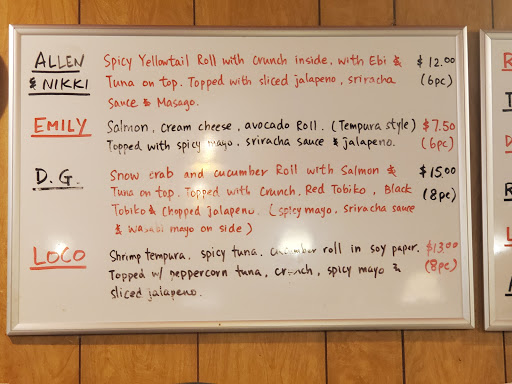 ALLEN & NIKKI
Spicy Yellowtail Roll with Crunch inside, with Ebi & $12.00
Tuna on top. Topped with sliced jalapeno, sriracha (6pc)
Sauce & Masago.
EMILY
Salmon, Cream cheese, avocado Roll. (Tempura style) $7.50
Topped with spicy mayo, sriracha sauce & jalapeno. (6pc)
D.G.
Snow crab and cucumber Roll with Salmon & $15.00
Tuna on top. Topped with Crunch, Red Tobiko, Black (8pc)
Tobiko & Chopped Jalapeno. (spicy mayo, sriracha sauce
& Wasabi mayo on side)
LOCO
Shrimp tempura, spicy tuna, cucumber roll in soy paper. $13.00
Topped w/ peppercorn tuna, crunch, spicy mayo & (8pc)
sliced jalapeno.